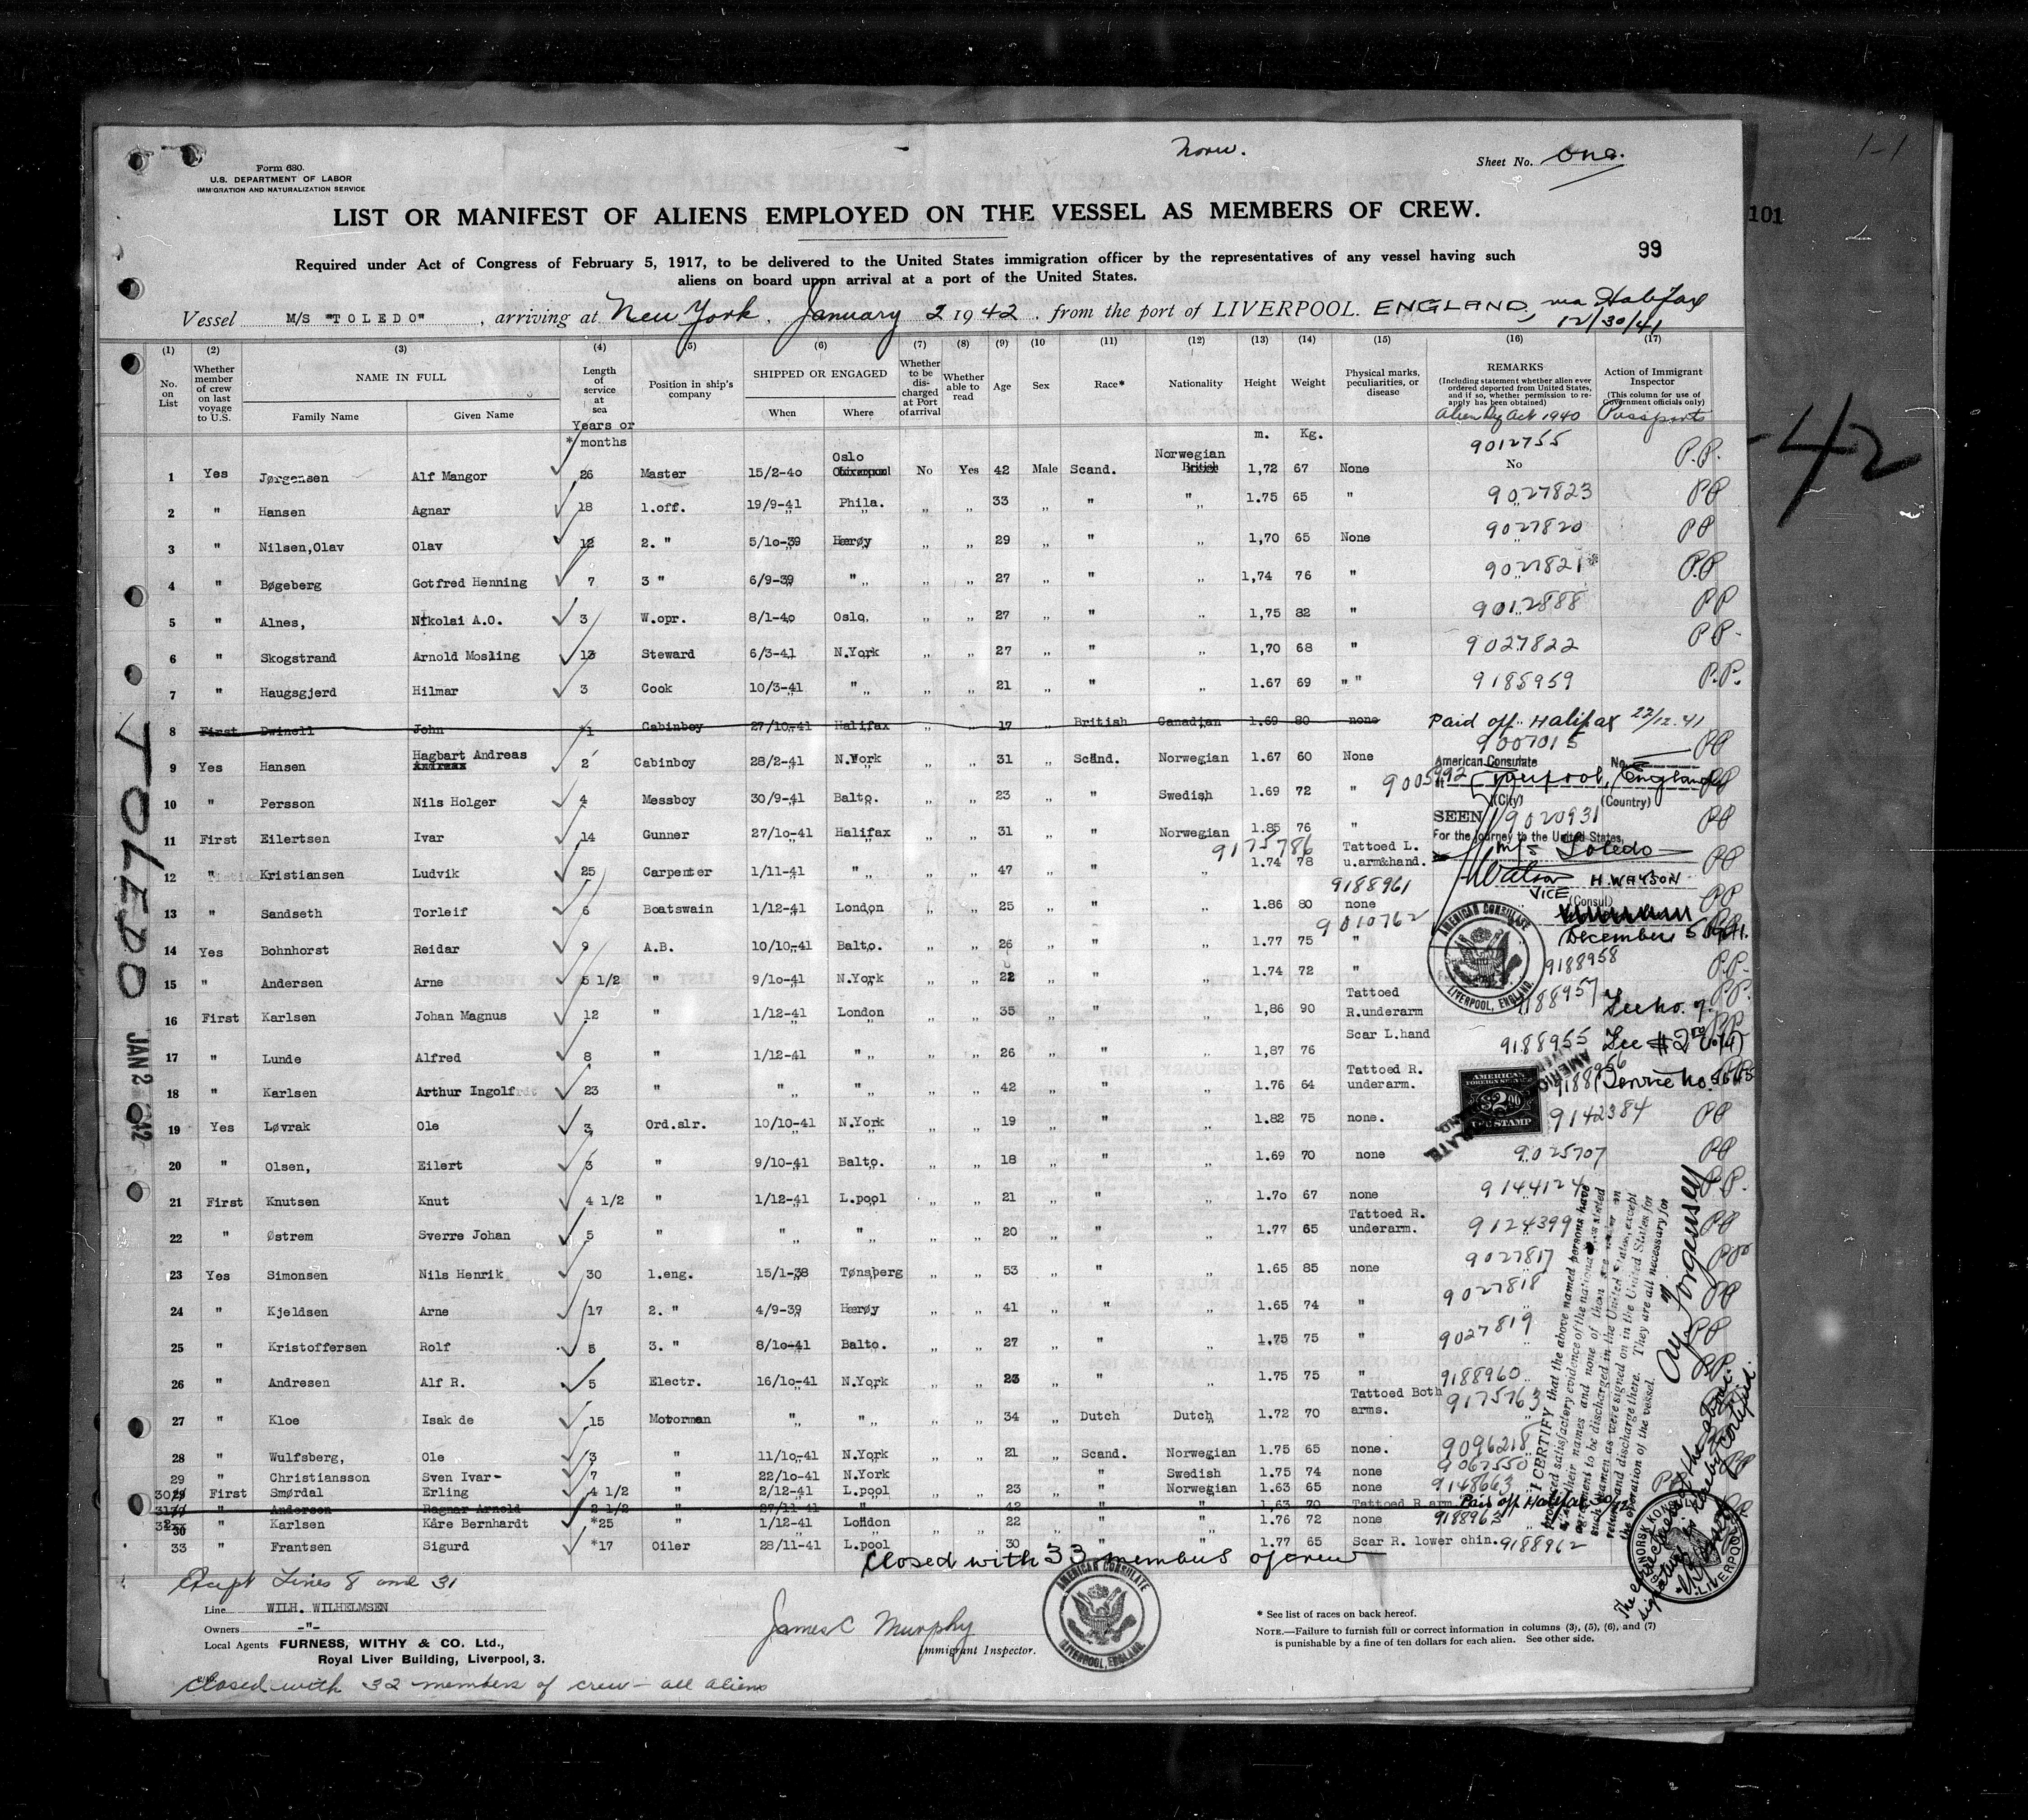 Norw.
Form 680.
U.S. DEPARTMENT OF LABOR
IMMIGRATION AND NATURALIZATION SERVICE
Sheet No. One.
1-1
LIST OR MANIFEST OF ALIENS EMPLOYED ON THE VESSEL AS MEMBERS OF CREW.
101
99
Required under Act of Congress of February 5, 1917, to be delivered to the United States immigration officer by the representatives of any vessel having such
aliens on board upon arrival at a port of the United States.
Vessel M/S "TOLEDO", arriving at New York, January 2 1942, from the port of LIVERPOOL. ENGLAND, via Halifax
12/30/41
(1) (2) (3) (4) (5) (6) (7) (8) (9) (10 (11) (12) (13) (14) (15) (16) (17)
No. on List
Whether member of crew on last voyage to U.S.
NAME IN FULL
Family Name Given Name
Length of service at sea
Years or * months
Position in ship's company
SHIPPED OR ENGAGED
When Where
Whether to be discharged at Port of arrival
Whether able to read
Age Sex Race* Nationality Height Weight
m. Kg.
Physical marks, peculiarities, or disease
REMARKS
(Including statement whether alien ever ordered deported from United States, and if so, whether permission to reapply has been obtained)
Alien Reg Act 1940
Action of Immigrant Inspector
(This column for use of Government officials only)
Passports
-42
1 Yes Jørgensen Alf Mangor 26 Master 15/2-40 Oslo No Yes 42 Male Scand. Norwegian 1,72 67 None 9012755 No P.P.
2 " Hansen Agnar 18 1.off. 19/9-41 Phila. " " 33 " " " 1.75 65 " 9027823 PP
3 " Nilsen,Olav Olav 12 2. " 5/10-39 Herøy " " 29 " " " 1,70 65 None 9027820 PP
4 " Bøgeberg Gotfred Henning 7 3 " 6/9-39 " " " 27 " " " 1,74 76 " 9027821 P.P
5 " Alnes, Nikolai A.O. 3 W.opr. 8/1-40 Oslo. " " 27 " " " 1,75 82 " 9012888 PP
6 " Skogstrand Arnold Mosling 13 Steward 6/3-41 N.York " " 27 " " " 1,70 68 " 9027822 PP.
7 " Haugsgjerd Hilmar 3 Cook 10/3-41 " " " 21 " " " 1.67 69 " " 9185959 P.P.
8 First Dwinell John *1 Cabinboy 27/10-41 Halifax " " 17 " British Canadian 1.69 80 none Paid off Halifax 22/12.41
9 Yes Hansen Hagbart Andreas 2 Cabinboy 28/2-41 N.York " " 31 " Scand. Norwegian 1.67 60 None 9007015 PP
10 " Persson Nils Holger 4 Messboy 30/9-41 Balto. " " 23 " " Swedish 1.69 72 " 9005992 PP
11 First Eilertsen Ivar 14 Gunner 27/10-41 Halifax " " 31 " " Norwegian 1.85 76 " 9020931 PP
12 " Kristiansen Ludvik 25 Carpenter 1/11-41 " " " 47 " " " 1.74 78 Tattoed L. u.arm&hand. 9175786 PP
13 " Sandseth Torleif 6 Boatswain 1/12-41 London " " 25 " " " 1.86 80 none 9188961 PP
14 Yes Bohnhorst Reidar 9 A.B. 10/10-41 Balto. " " 26 " " " 1.77 75 " 9010762 PP
15 " Andersen Arne 5 1/2 " 9/10-41 N.York " " 22 " " " 1.74 72 " 9188958 P.P.
16 First Karlsen Johan Magnus 12 " 1/12-41 London " " 35 " " " 1,86 90 Tattoed R.underarm 9188957 PP.
17 " Lunde Alfred 8 " 1/12-41 " " " 26 " " " 1,87 76 Scar L.hand 9188955 PP
18 " Karlsen Arthur Ingolf 23 " " " " " 42 " " " 1.76 64 Tattoed R. underarm. 9188956
19 Yes Løvrak Ole 3 Ord.slr. 10/10-41 N.York " " 19 " " " 1.82 75 none. 9142384 PP
20 " Olsen, Eilert 3 " 9/10-41 Balto. " " 18 " " " 1.69 70 none 9025707 PP
21 First Knutsen Knut 4 1/2 " 1/12-41 L.pool " " 21 " " " 1.70 67 none 9144124 P.P.
22 " Østrem Sverre Johan 5 " " " " " 20 " " " 1.77 65 Tattoed R. underarm. 9124399 PP
23 Yes Simonsen Nils Henrik 30 1.eng. 15/1-38 Tønsberg " " 53 " " " 1.65 85 none 9027817 PP
24 " Kjeldsen Arne 17 2. " 4/9-39 Herøy " " 41 " " " 1.65 74 " 9027818 PP
25 " Kristoffersen Rolf 5 3. " 8/10-41 Balto. " " 27 " " " 1.75 75 " 9027819 PP
26 " Andresen Alf R. 5 Electr. 16/10-41 N.York " " 23 " " " 1.75 75 " 9188960 P.P.
27 " Kloe Isak de 15 Motorman " " " " 34 " Dutch Dutch 1.72 70 Tattoed Both arms. 9175763
28 " Wulfsberg, Ole 3 " 11/10-41 N.York " " 21 " Scand. Norwegian 1.75 65 none. 9096218
29 " Christiansson Sven Ivar- 7 " 22/10-41 N.York " Swedish 1.75 74 none 9067550 PP
30 First Smørdal Erling 4 1/2 " 2/12-41 L.pool " " 23 " " Norwegian 1.63 65 none 9148663
31 " Andersen Ragnar Arnold 2 1/2 " 27/11-41 " 42 " " " 1,63 70 Tattoed R.arm Paid off Halifax
32 " Karlsen Kåre Bernhardt *25 " 1/12-41 London " " 22 " " " 1.76 72 none 9188963
33 " Frantsen Sigurd *17 Oiler 28/11-41 L.pool 30 " " " 1.77 65 Scar R. lower chin. 9188962
American Consulate No.
Liverpool, England
(City) (Country)
SEEN
For the journey to the United States,
M/s Toledo
H. Watson H. WATSON
VICE (Consul)
December 5 1941.
AMERICAN CONSULATE
LIVERPOOL, ENGLAND.
See no. 7.
Service No.
AMERICAN FOREIGN SERVICE
$2.00
FEE STAMP
I CERTIFY that the above named persons have
produced satisfactory evidence of the nationality as stated
after their names and none of them are under an
agreement to be discharged in the United States, except
such seamen as were signed on in the United States for
return and discharge there. They are all necessary for
the operation of the vessel.
A M Jørgensen
The correctness of the above
signature is hereby certified.
NORSK KONSULAT
LIVERPOOL
TOLEDO
JAN 2 1942
Closed with 33 members of crew
Except Lines 8 and 31
Line WILH. WILHELMSEN
Owners -"-
Local Agents FURNESS, WITHY & CO. Ltd.,
Royal Liver Building, Liverpool, 3.
James C Murphy
Immigrant Inspector.
AMERICAN CONSULATE
LIVERPOOL, ENGLAND.
* See list of races on back hereof.
NOTE.—Failure to furnish full or correct information in columns (3), (5), (6), and (7)
is punishable by a fine of ten dollars for each alien. See other side.
Closed with 32 members of crew — all aliens